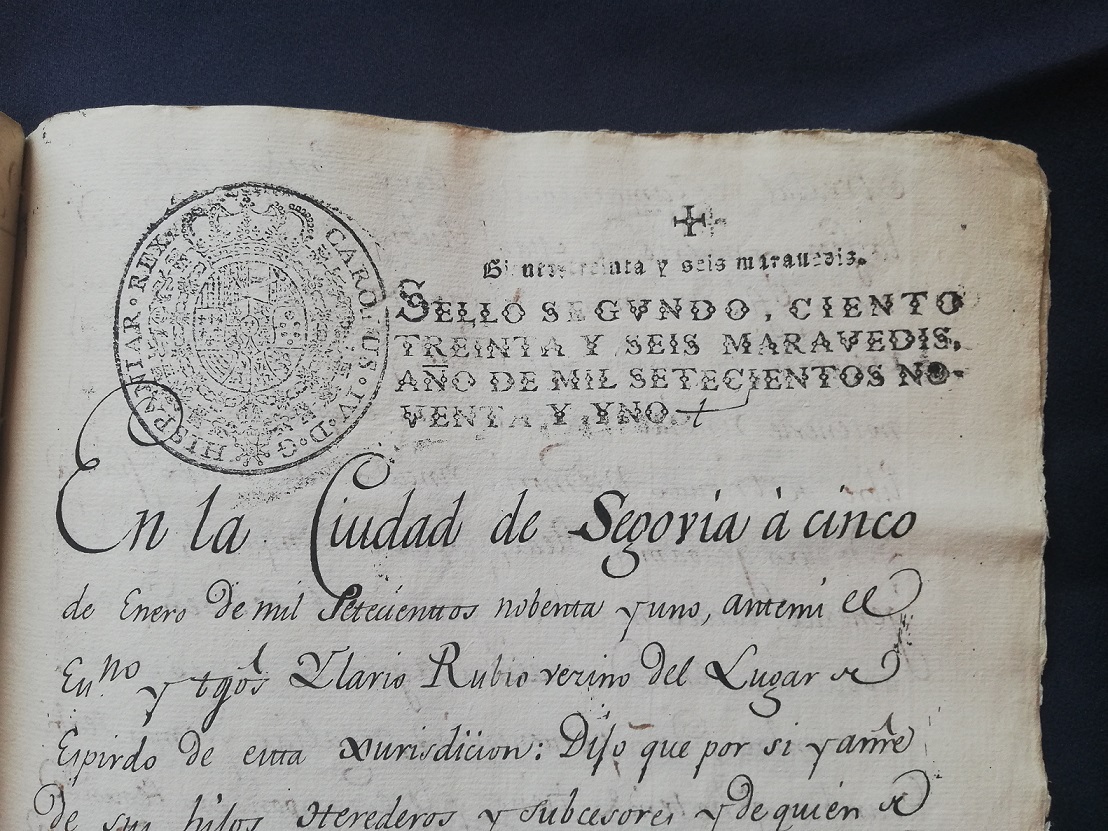 CAROLUS·IV·D·G· HISPANIAR·REX·
treinta y seis maravedis.
SELLO SEGVNDO, CIENTO
TREINTA Y SEIS MARAVEDIS,
AÑO DE MIL SETECIENTOS NO-
VENTA Y VNO.
En la Ciudad de Segovia á cinco
de Enero de mil Setecientos nobenta y uno, antemi el
Esno y tgos Ylario Rubio vezino del Lugar de
Espirdo de esta Jurisdicion: Dijo que por si y anre
de sus hijos Herederos y subcesores y de quien